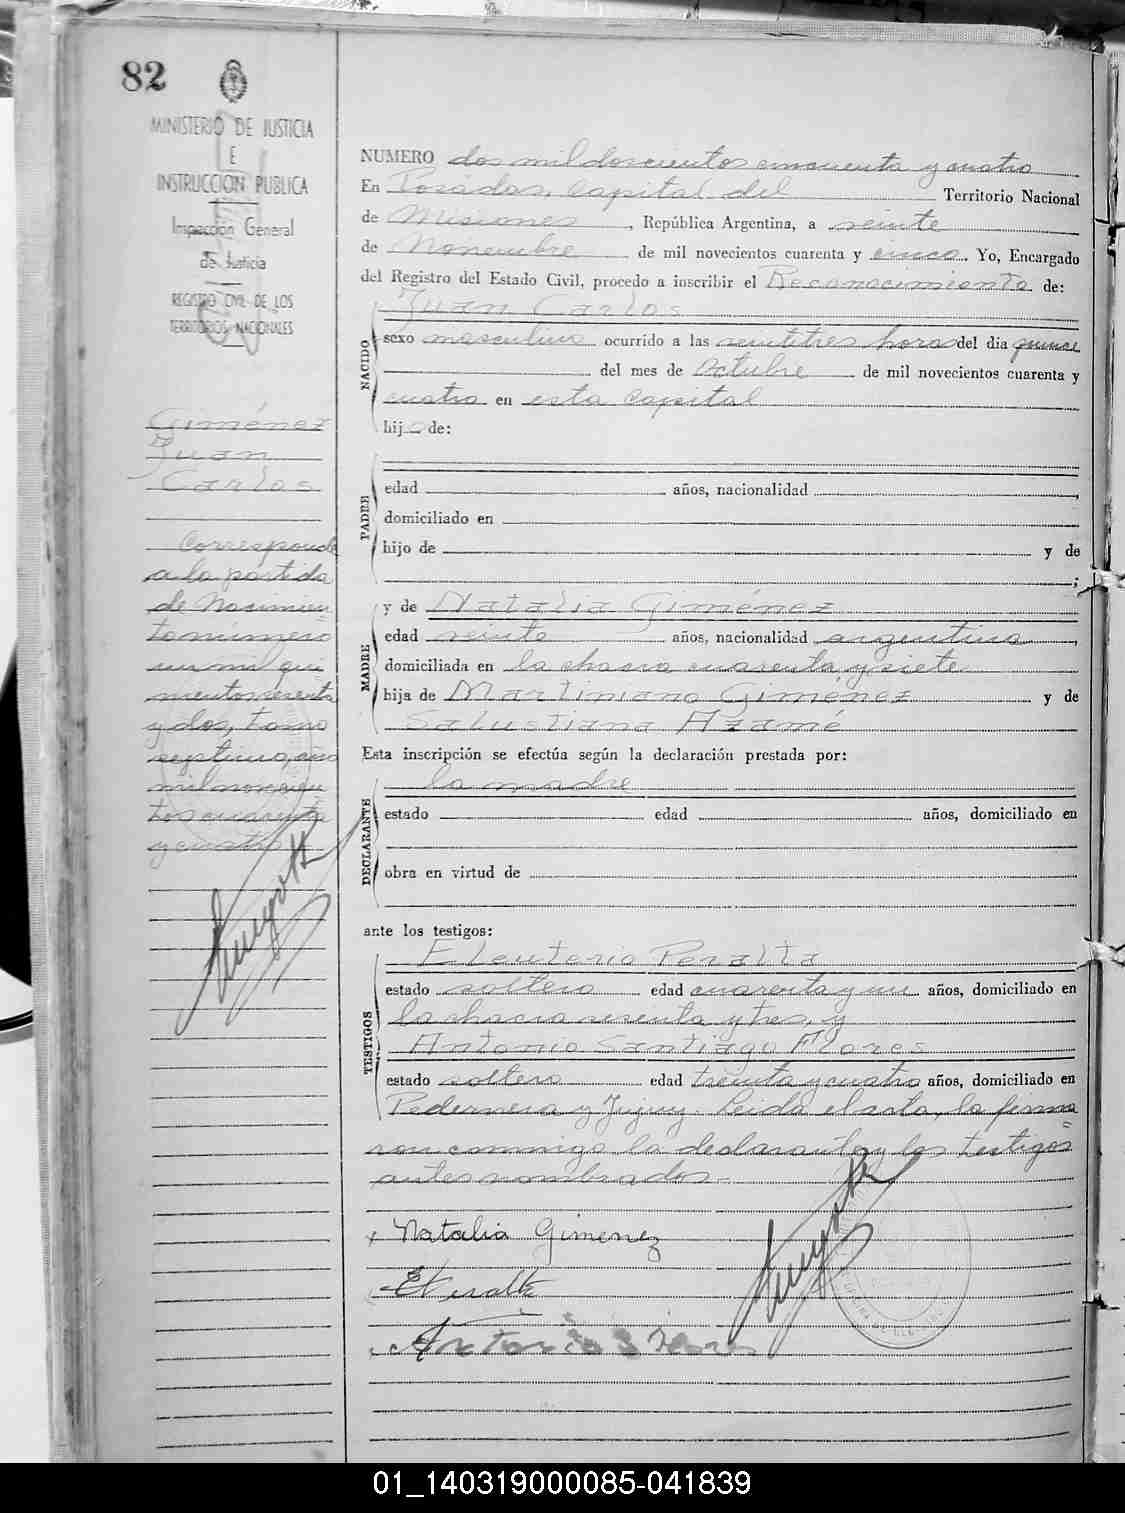 82
MINISTERIO DE JUSTICIA
E
INSTRUCCION PUBLICA
Inspección General
de Justicia
REGISTRO CIVIL DE LOS
TERRITORIOS NACIONALES
Giménez
Juan
Carlos
Corresponde
a la partida
de Nacimien
to número
un mil qui
nientos sesenta
y dos, tomo
septimo, año
mil novecien
tos cuarenta
y cuatro
NUMERO dos mil doscientos cincuenta y cuatro
En Posadas, Capital del Territorio Nacional
de Misiones, República Argentina, a veinte
de Noviembre de mil novecientos cuarenta y cinco. Yo, Encargado
del Registro del Estado Civil, procedo a inscribir el Reconocimiento de:
Juan Carlos
NACIDO
sexo masculino ocurrido a las veintitres hora del dia quince
del mes de Octubre de mil novecientos cuarenta y
cuatro en esta Capital
hijo de:
PADRE
edad años, nacionalidad
domiciliado en
hijo de y de
;
MADRE
y de Natalia Giménez
edad veinte años, nacionalidad argentina,
domiciliada en la chacra cuarenta y siete
hija de Martiniano Giménez y de
Salustiana Azamé
Esta inscripción se efectúa según la declaración prestada por:
DECLARANTE
la madre
estado edad años, domiciliado en
obra en virtud de
ante los testigos:
TESTIGOS
Eleuterio Peralta
estado soltero edad cuarenta y un años, domiciliado en
la chacra sesenta y tres, y
Antonio Santiago Flores
estado soltero edad treinta y cuatro años, domiciliado en
Pedernera y Jujuy. Leida el acta, la firma
ron conmigo la declarante y los testigos
antes nombrados.
Natalia Gimenez
E Peralta
Antonio S Flores
01_140319000085-041839